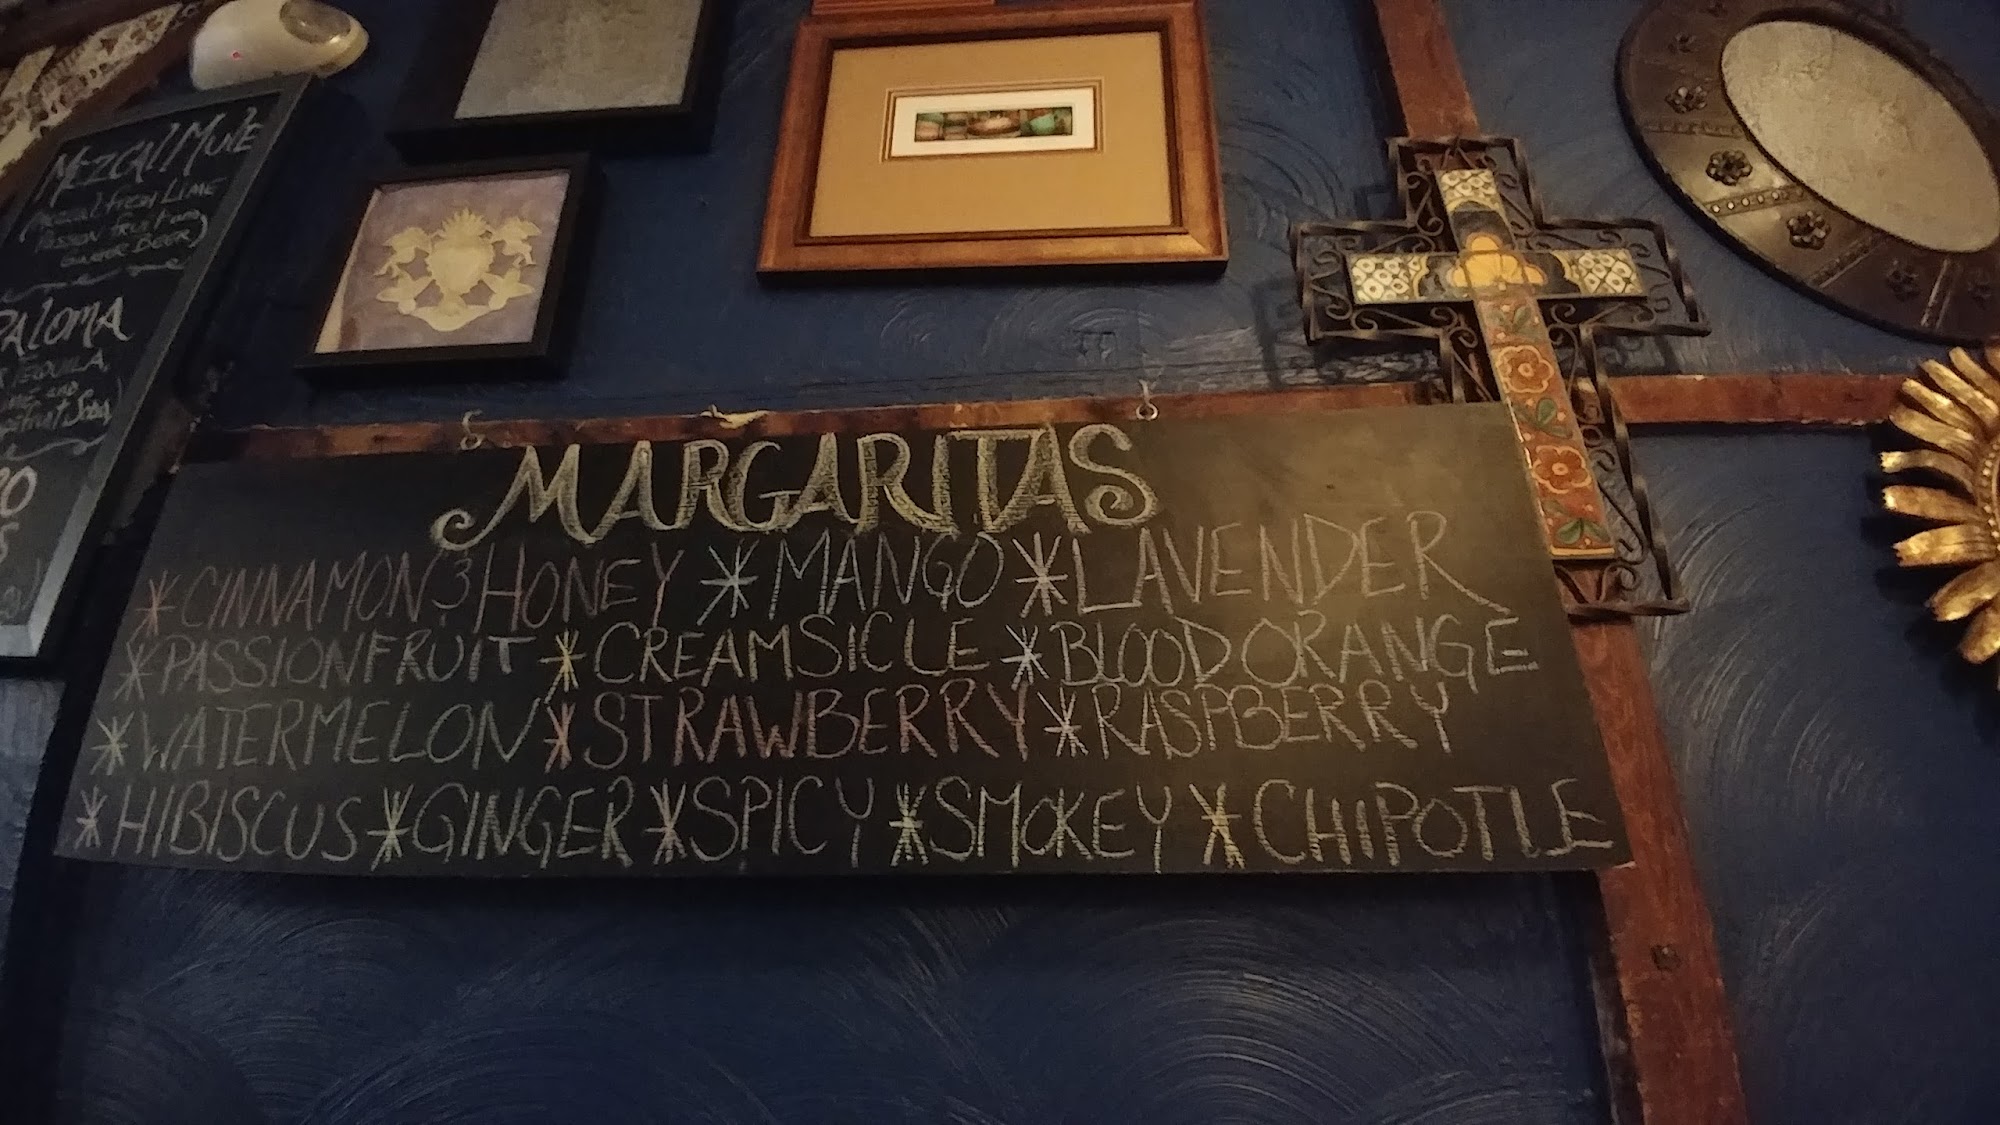 MEZCAL MULE
(MEZCAL FRESH LIME
PASSION FRUIT AND
GINGER BEER)
PALOMA
TEQUILA,
AND
Soda)
MARGARITAS
*CINNAMON & HONEY *MANGO *LAVENDER
*PASSIONFRUIT *CREAMSICLE *BLOOD ORANGE
*WATERMELON *STRAWBERRY *RASPBERRY
*HIBISCUS *GINGER *SPICY *SMOKEY *CHIPOTLE